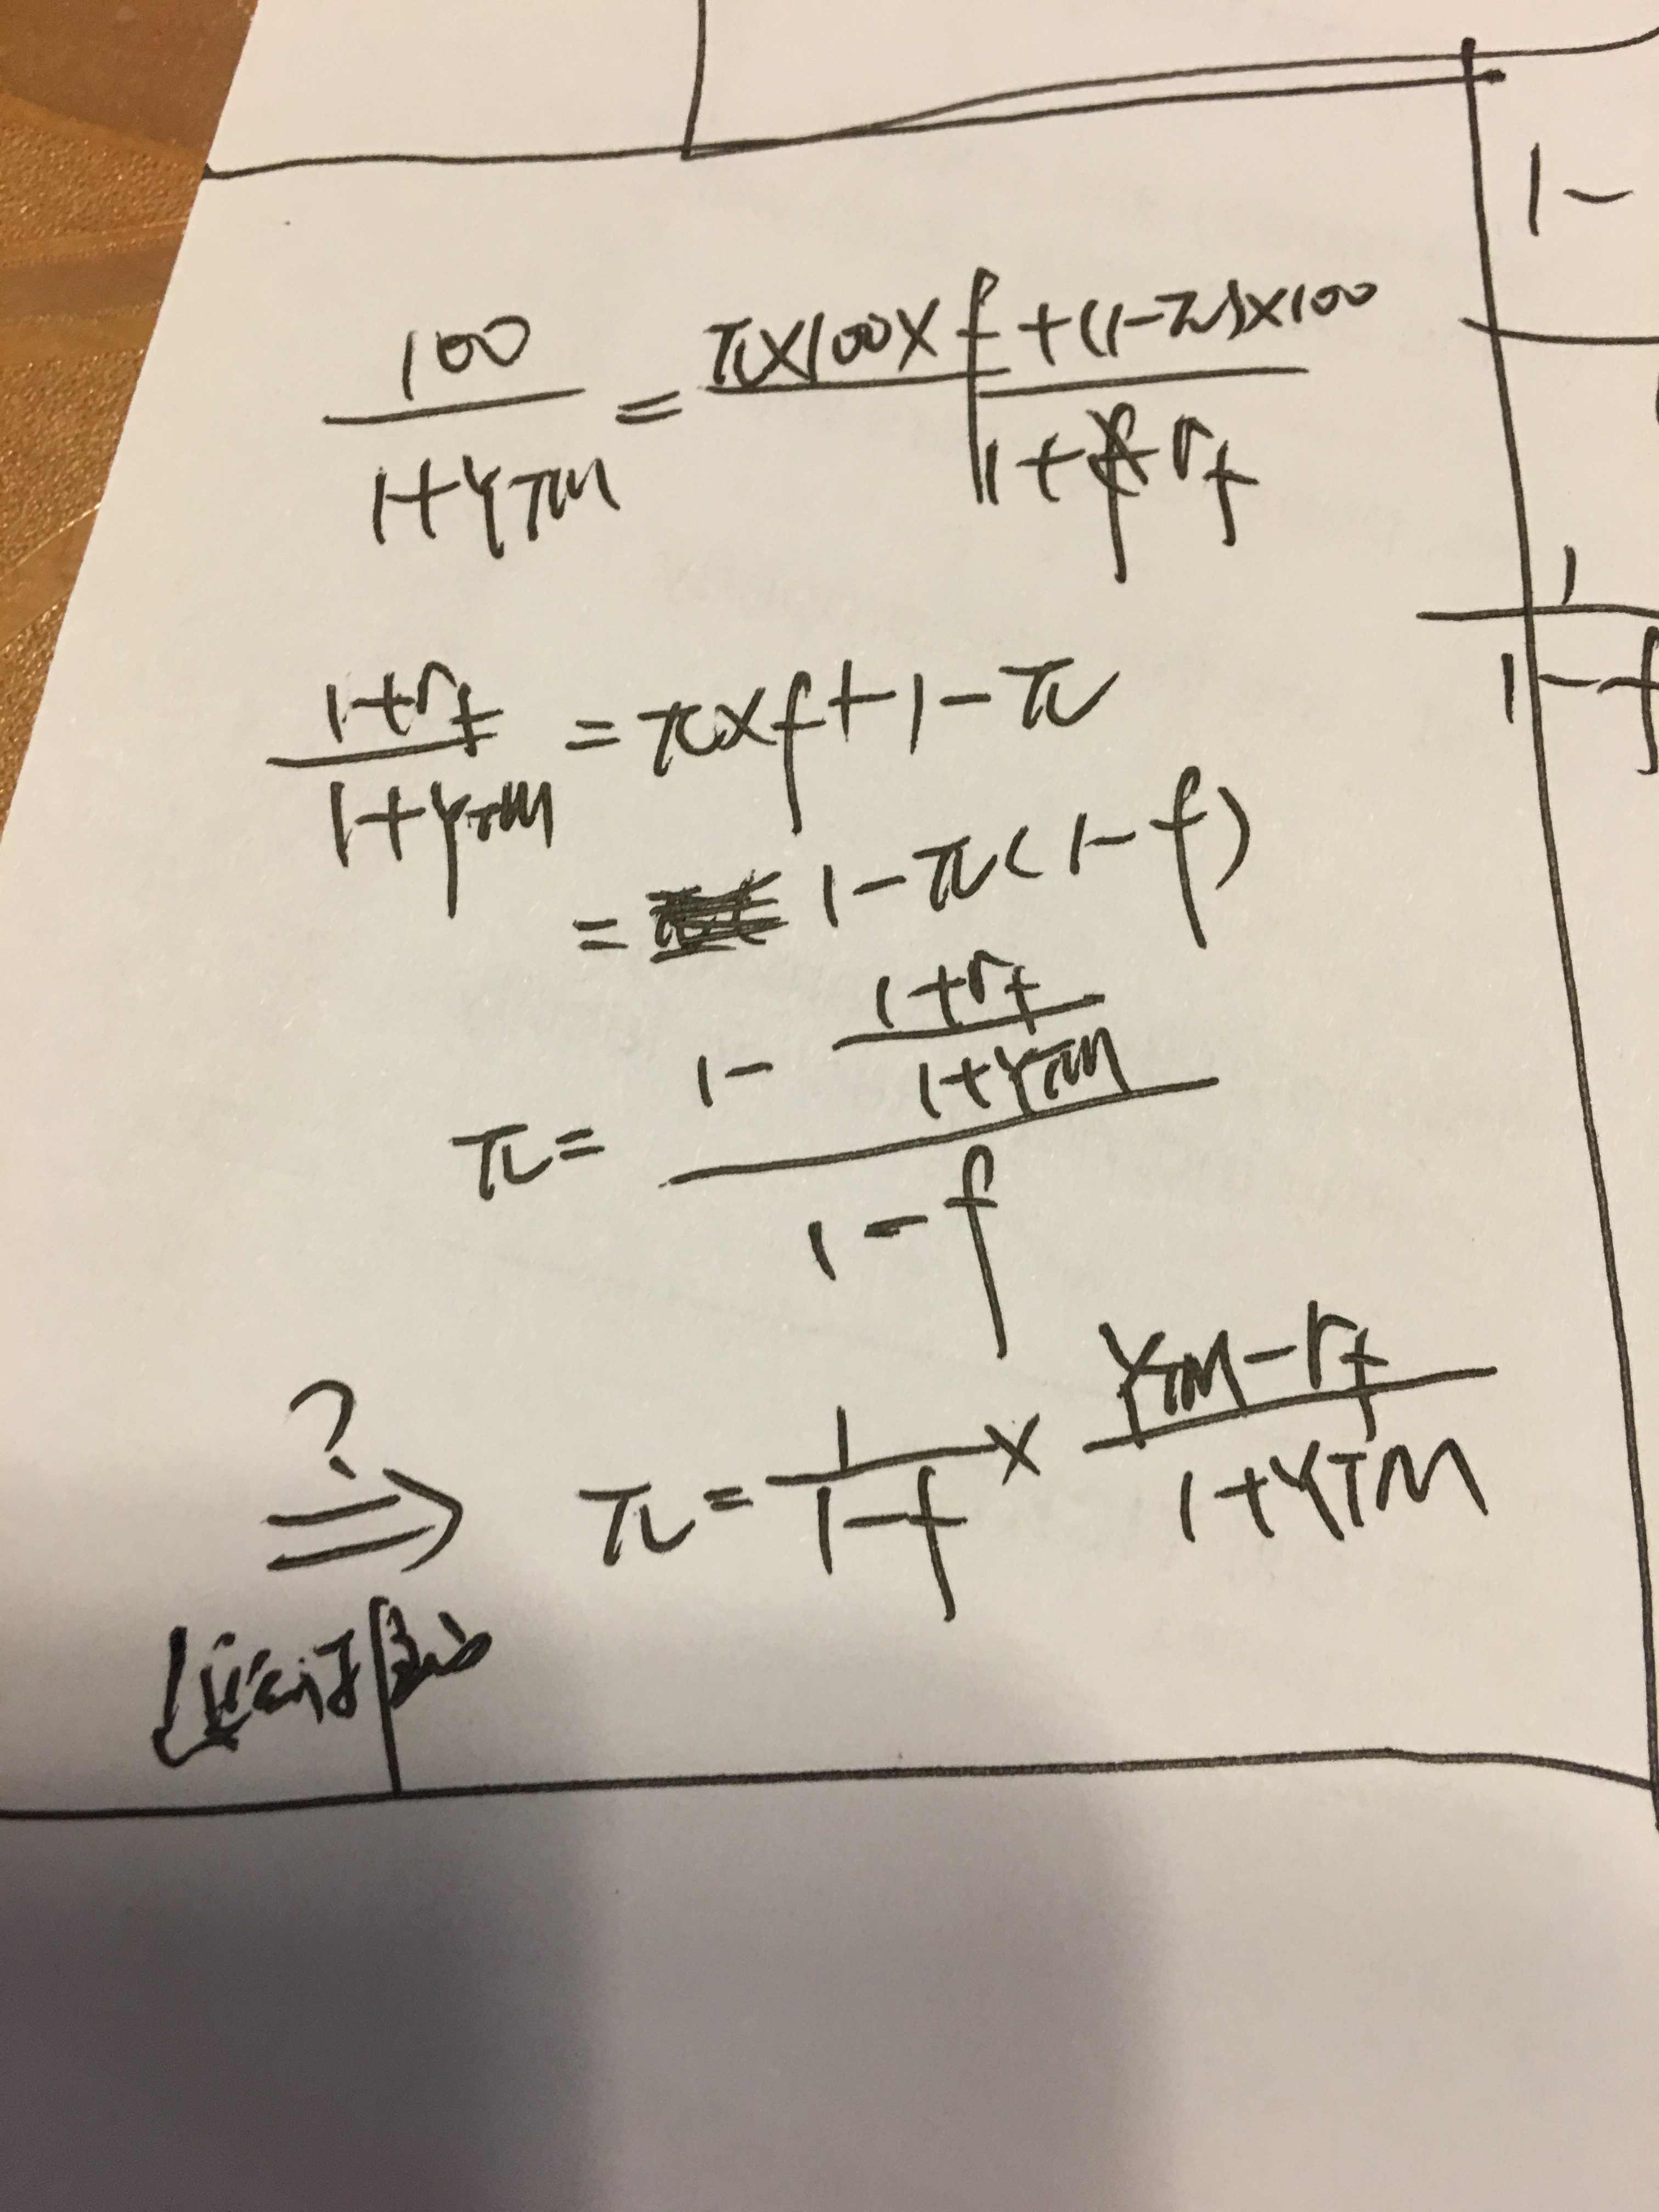 100 / 1+YTM = π×100×f+(1-π)×100 / 1+rf
1+rf / 1+YTM = π×f+1-π
= 1-π(1-f)
π = 1 - 1+rf / 1+YTM / 1-f
? ⇒ π = 1 / 1-f × YTM-rf / 1+YTM
1-
1
1-f